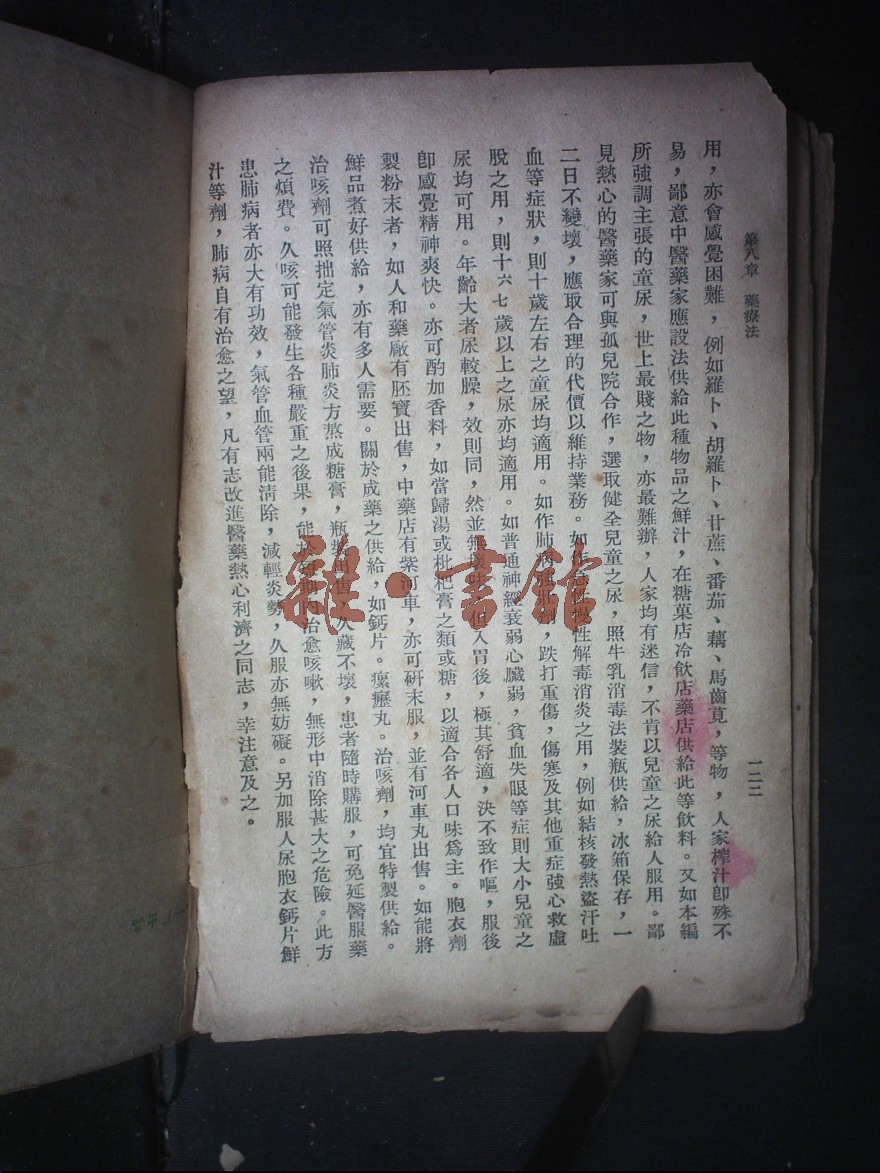 第八章　藥療法
一二二
用，亦會感覺困難，例如羅卜、胡羅卜、甘蔗、番茄、藕、馬齒莧，等物，人家榨汁卽殊不
易，鄙意中醫藥家應設法供給此種物品之鮮汁，在糖菓店冷飲店藥店供給此等飲料。又如本編
所強調主張的童尿，世上最賤之物，亦最難辦，人家均有迷信，不肯以兒童之尿給人服用。鄙
見熱心的醫藥家可與孤兒院合作，選取健全兒童之尿，照牛乳消毒法裝瓶供給，冰箱保存，一
二日不變壞，應取合理的代價以維持業務。如作急性慢性解毒消炎之用，例如結核發熱盜汗吐
血等症狀，則十歲左右之童尿均適用。如作肺病強壯劑，跌打重傷，傷寒及其他重症強心救虛
脫之用，則十六七歲以上之尿亦均適用。如普通神經衰弱心臟弱，貧血失眠等症則大小兒童之
尿均可用。年齡大者尿較臊，效則同，然並無壞味，但入胃後，極其舒適，決不致作嘔，服後
卽感覺精神爽快。亦可酌加香料，如當歸湯或枇杷膏之類或糖，以適合各人口味爲主。胞衣劑
製粉末者，如人和藥廠有胚寶出售，中藥店有紫河車，亦可研末服，並有河車丸出售。如能將
鮮品煮好供給，亦有多人需要。關於成藥之供給，如鈣片。瘰癧丸。治咳劑，均宜特製供給。
治咳劑可照拙定氣管炎肺炎方熬成糖膏，瓶裝出售，久藏不壞，患者隨時購服，可免延醫服藥
之煩費。久咳可能發生各種嚴重之後果，能於短期內治愈咳嗽，無形中消除甚大之危險。此方
患肺病者亦大有功效，氣管血管兩能淸除，減輕炎勢，久服亦無妨礙。另加服人尿胞衣鈣片鮮
汁等劑，肺病自有治愈之望，凡有志改進醫藥熱心利濟之同志，幸注意及之。
雜·書館